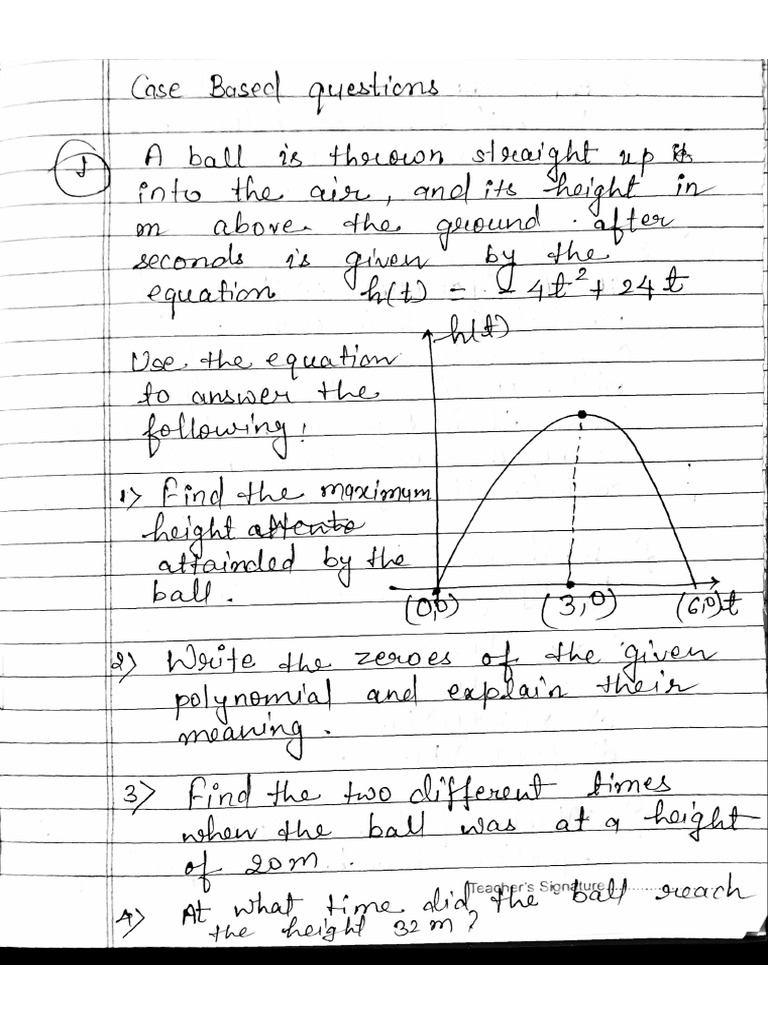 Case Based questions
1
A ball is thrown straight up
into the air, and its height in
m above the ground after
seconds is given by the
equation h(t) = - 4t² + 24t
h(t)
Use the equation
to answer the
following:
1) Find the maximum
height
attainded by the
ball.
(0,0) (3,0) (6,0) t
2) Write the zeroes of the given
polynomial and explain their
meaning.
3) Find the two different times
when the ball was at a height
of 20m.
Teacher's Signature
4) At what time did the ball reach
the height 32m?